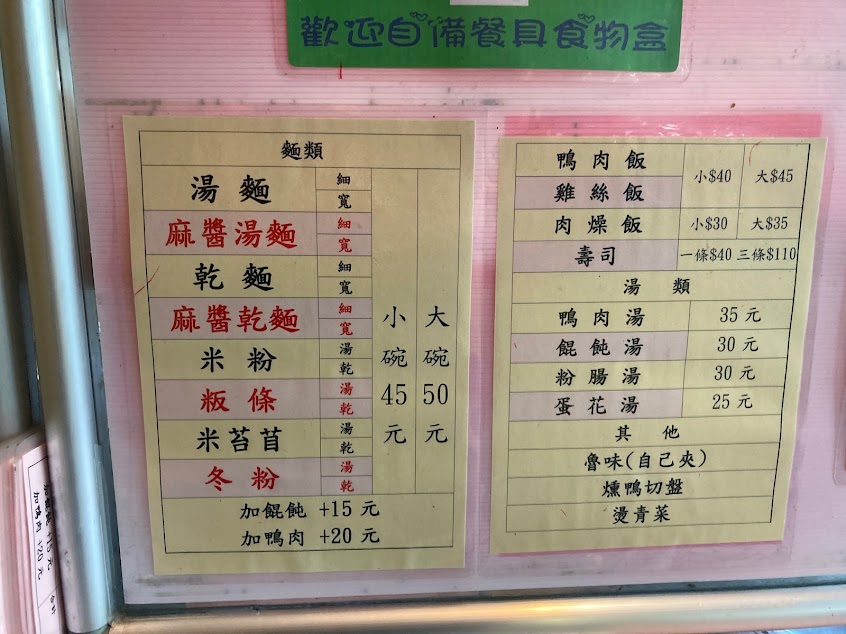 歡迎自備餐具食物盒
麵類
湯麵 細 寬
麻醬湯麵 細 寬
乾麵 細 寬
麻醬乾麵 細 寬
米粉 湯 乾
粄條 湯 乾
米苔苜 湯 乾
冬粉 湯 乾
小碗45元
大碗50元
加餛飩 +15 元
加鴨肉 +20 元
鴨肉飯
雞絲飯
小$40 大$45
肉燥飯 小$30 大$35
壽司 一條$40 三條$110
湯類
鴨肉湯 35 元
餛飩湯 30 元
粉腸湯 30 元
蛋花湯 25 元
其他
魯味(自己夾)
燻鴨切盤
燙青菜
加鴨肉 +20 元